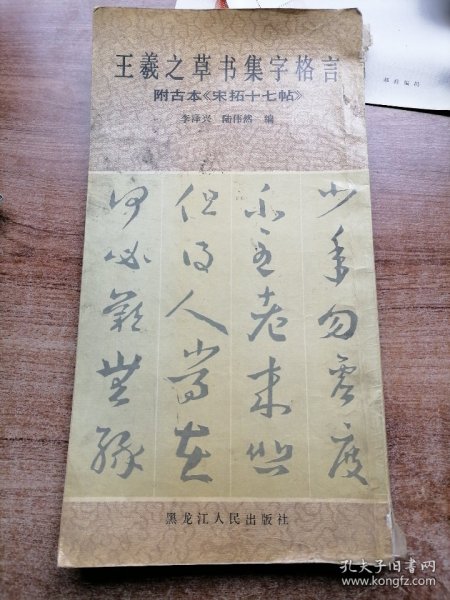 王羲之草书集字格言
附古本《宋拓十七帖》
李泽兴 陆伟然 编
少年勿虚度
至老来
但得人在
何必歎無緣
黑龙江人民出版社
孔夫子旧书网
www.kongfz.com